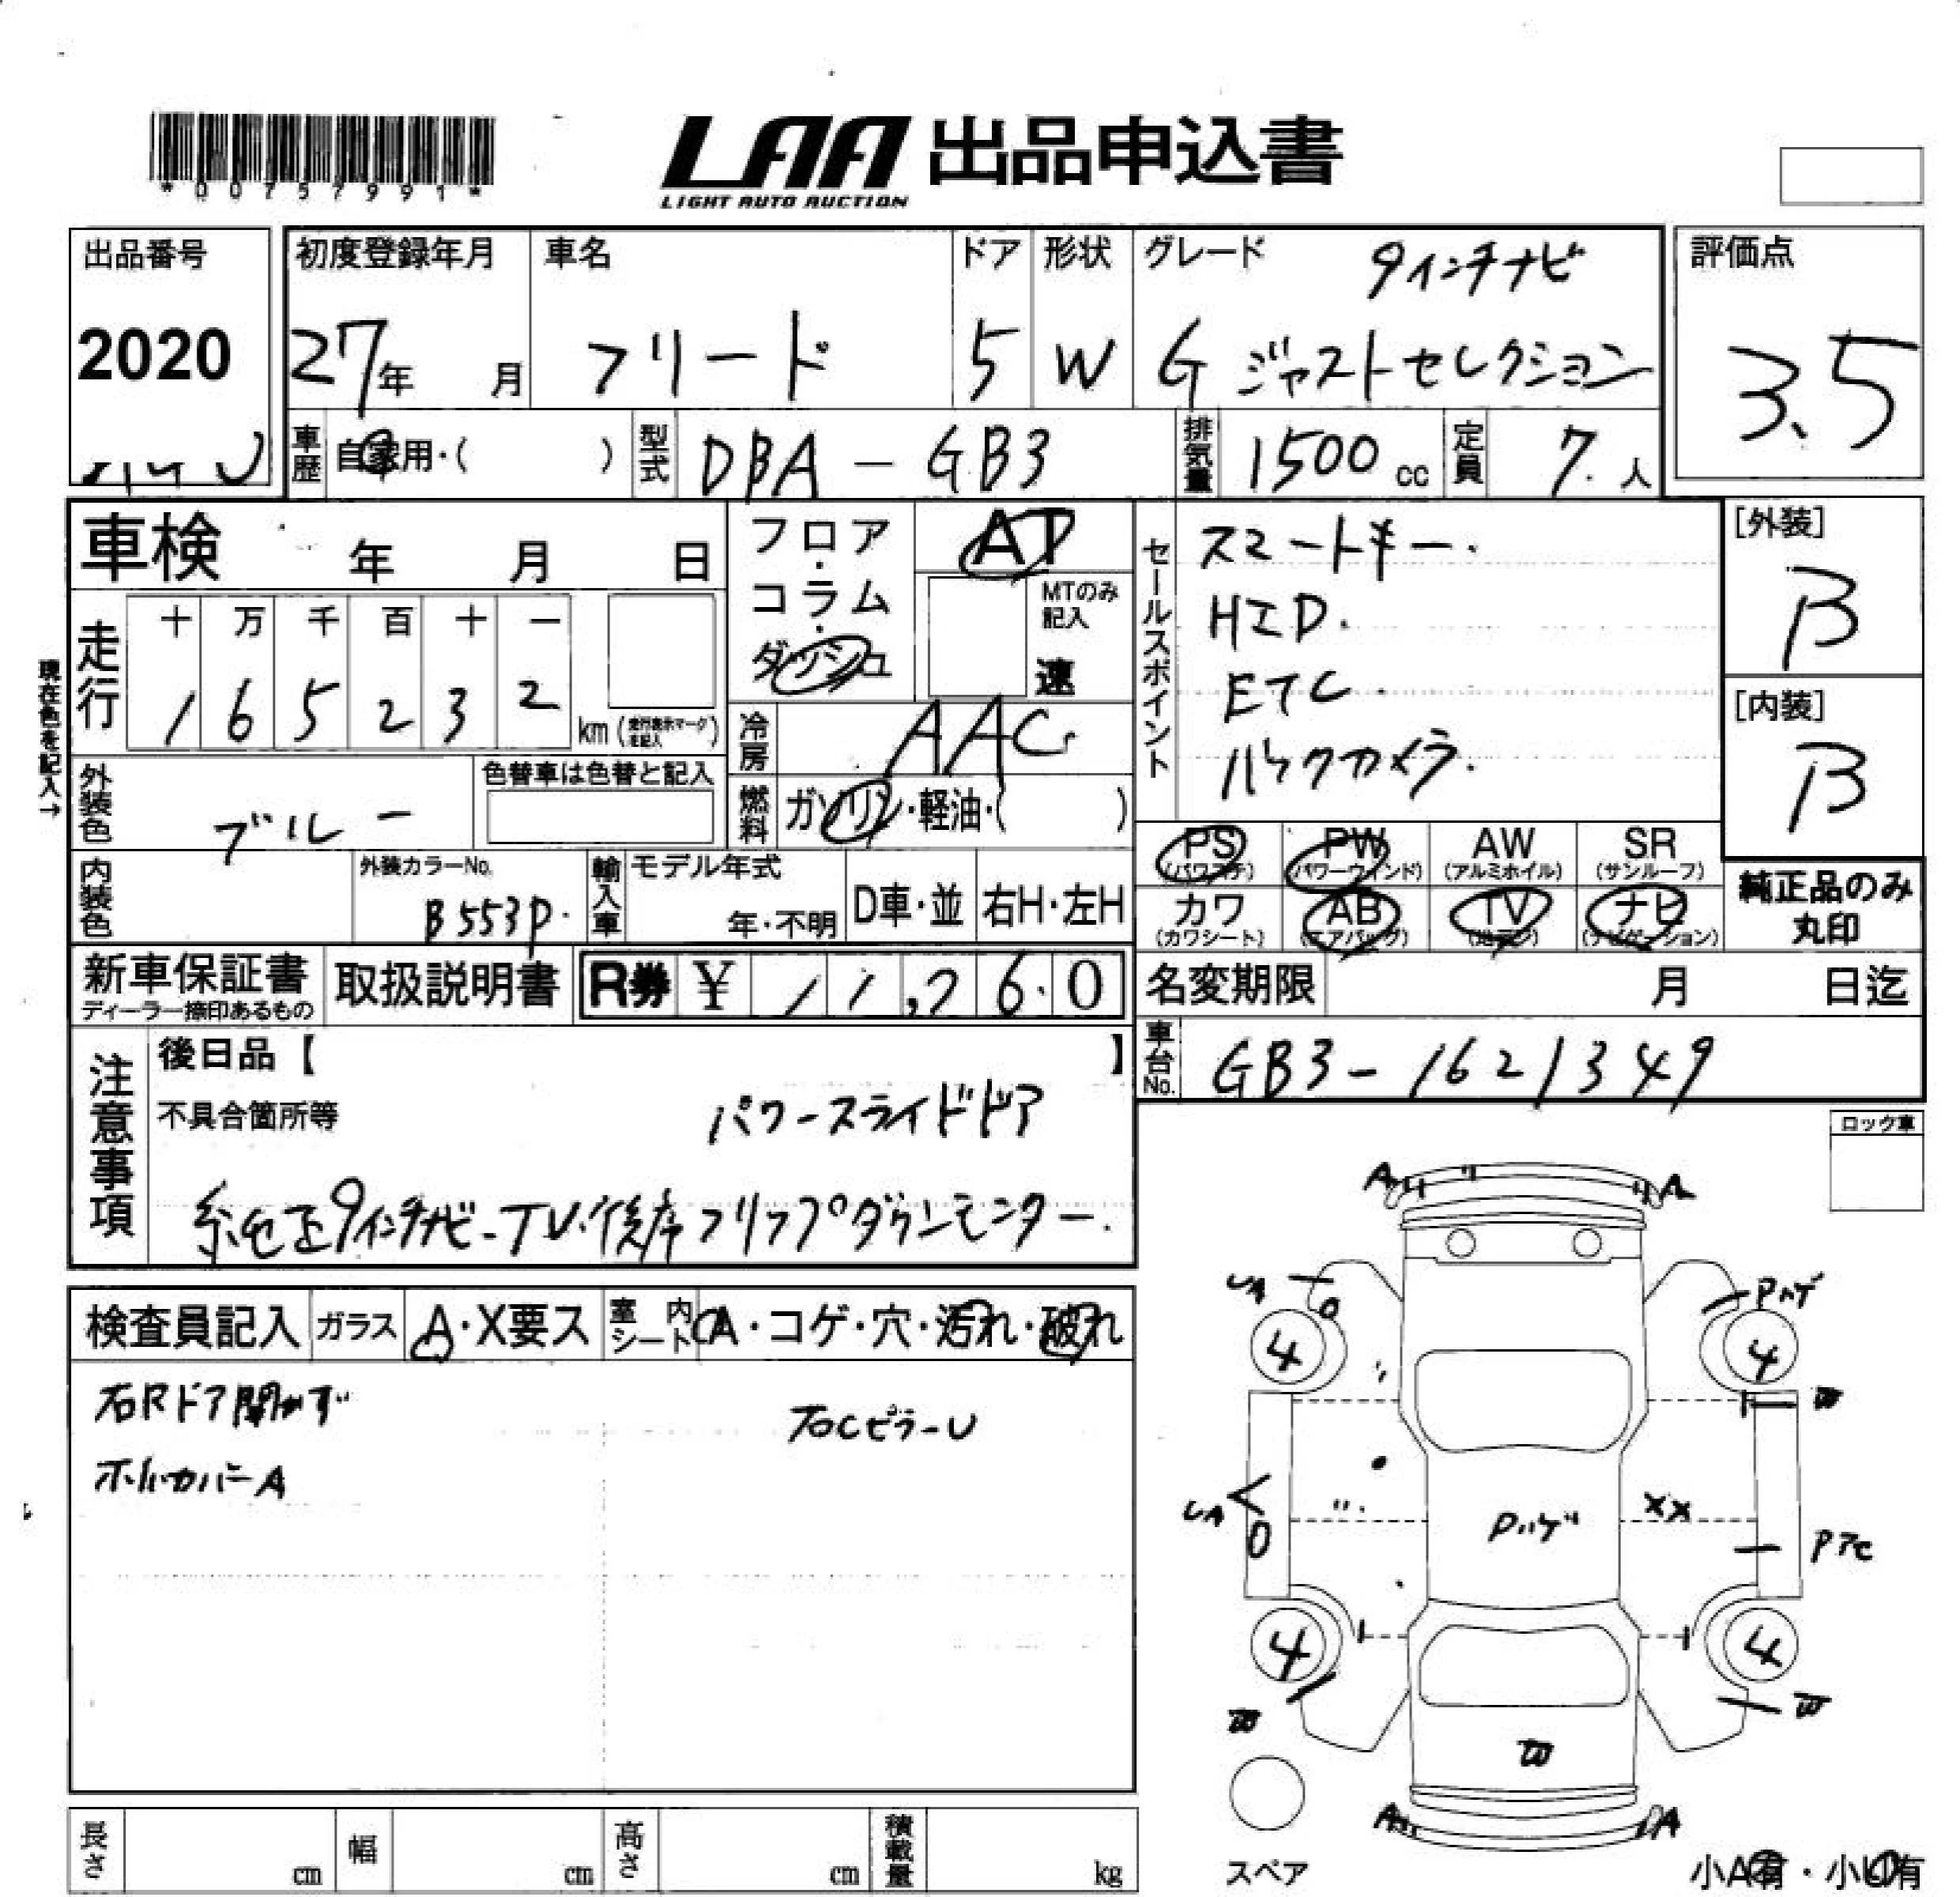 *00757991*
LAA 出品申込書
LIGHT AUTO AUCTION
出品番号 初度登録年月 車名 ドア 形状 グレード 9インチナビ 評価点
2020 27年 月 フリード 5 W G ジャストセレクション 3.5
車歴 自家用・( ) 型式 DBA-GB3 排気量 1500cc 定員 7.人
車検 年 月 日
フロア・コラム・ダッシュ AT
MTのみ記入
速
セールスポイント
スマートキー.
HID.
ETC.
バックカメラ.
[外装]
B
[内装]
B
現在色を記入→
走行 十 万 千 百 十 一
1 6 5 2 3 2 km (走行表示マークを記入)
冷房 AAC
外装色 ブルー 色替車は色替と記入
燃料 ガソリン・軽油・( )
PS (パワステ) PW (パワーウインド) AW (アルミホイル) SR (サンルーフ)
カワ (カワシート) AB (エアバッグ) TV (地デジ) ナビ (ナビゲーション)
純正品のみ
丸印
内装色 外装カラーNo. B553P. 輸入車 モデル年式 年・不明 D車・並 右H・左H
新車保証書 ディーラー捺印あるもの 取扱説明書 R券 ¥ 11,260
名変期限 月 日迄
車台No. GB3-1621349
注意事項
後日品【 】
不具合箇所等 パワースライドドア
純正9インチナビ-TV.後席フリップダウンモニター.
ロック車
検査員記入 ガラス A・X要ス 室内シート A・コゲ・穴・汚れ・破れ
右Rドア開かず 右CピラーU
ホイルカバーA
A A
UA Pハゲ
4 4
W
UA Pハゲ XX
P
4 4
W W
W
A A
スペア
小A有・小U有
長さ cm 幅 cm 高さ cm 積載量 kg